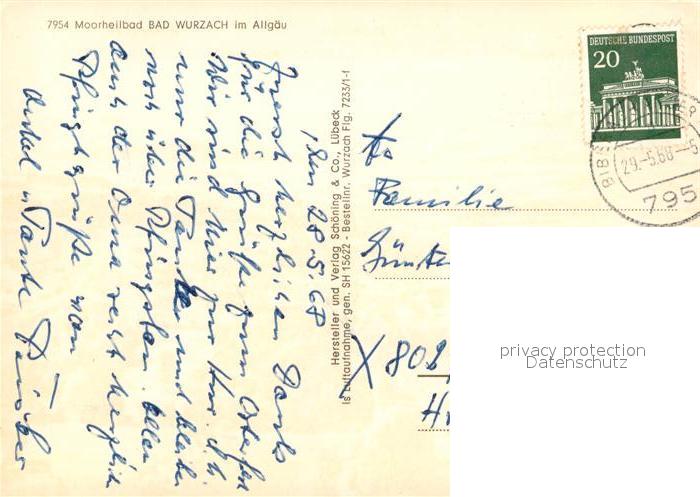 7954 Moorheilbad BAD WURZACH im Allgäu
, den 28.5.68
Zuerst herzlichen Dank
für die Grüße zum Osterfest
Wir sind hier zur Kur. d.h.
nur die Tante und bleiben
noch über Pfingsten. Allen
auch der Oma recht herzliche
Pfingstgrüße von
Onkel u Tante
Hersteller und Verlag Schöning & Co., Lübeck
Is Luftaufnahme, gen. SH 15622 - Bestellnr. Wurzach Flg. 7233/1-1
DEUTSCHE BUNDESPOST
20
29.-5.68
795
Familie
Günte
X 802
privacy protection
Datenschutz